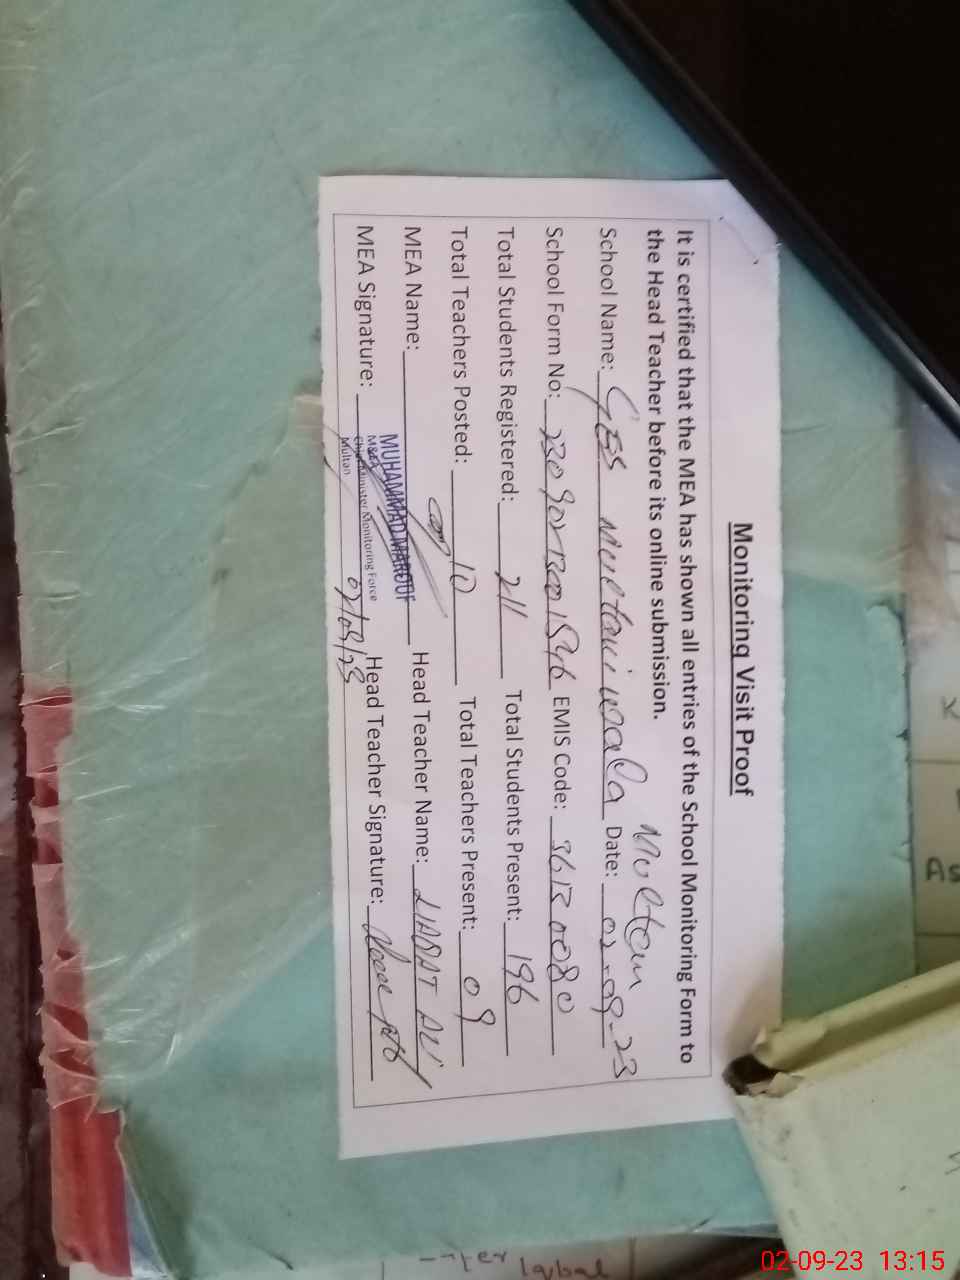 Monitoring Visit Proof
It is certified that the MEA has shown all entries of the School Monitoring Form to
the Head Teacher before its online submission.
Multan
School Name: GES Multani wala Date: 02-09-23
School Form No: EMIS Code: 36130080
Total Students Registered: 211 Total Students Present: 196
Total Teachers Posted: 10 Total Teachers Present: 09
MEA Name: MUHAMMAD MAROOF Head Teacher Name: LIAQAT ALI
M&EA
Chief Minister Monitoring Force
Multan
MEA Signature: 02/09/23 Head Teacher Signature:
As
Iqbal
02-09-23 13:15